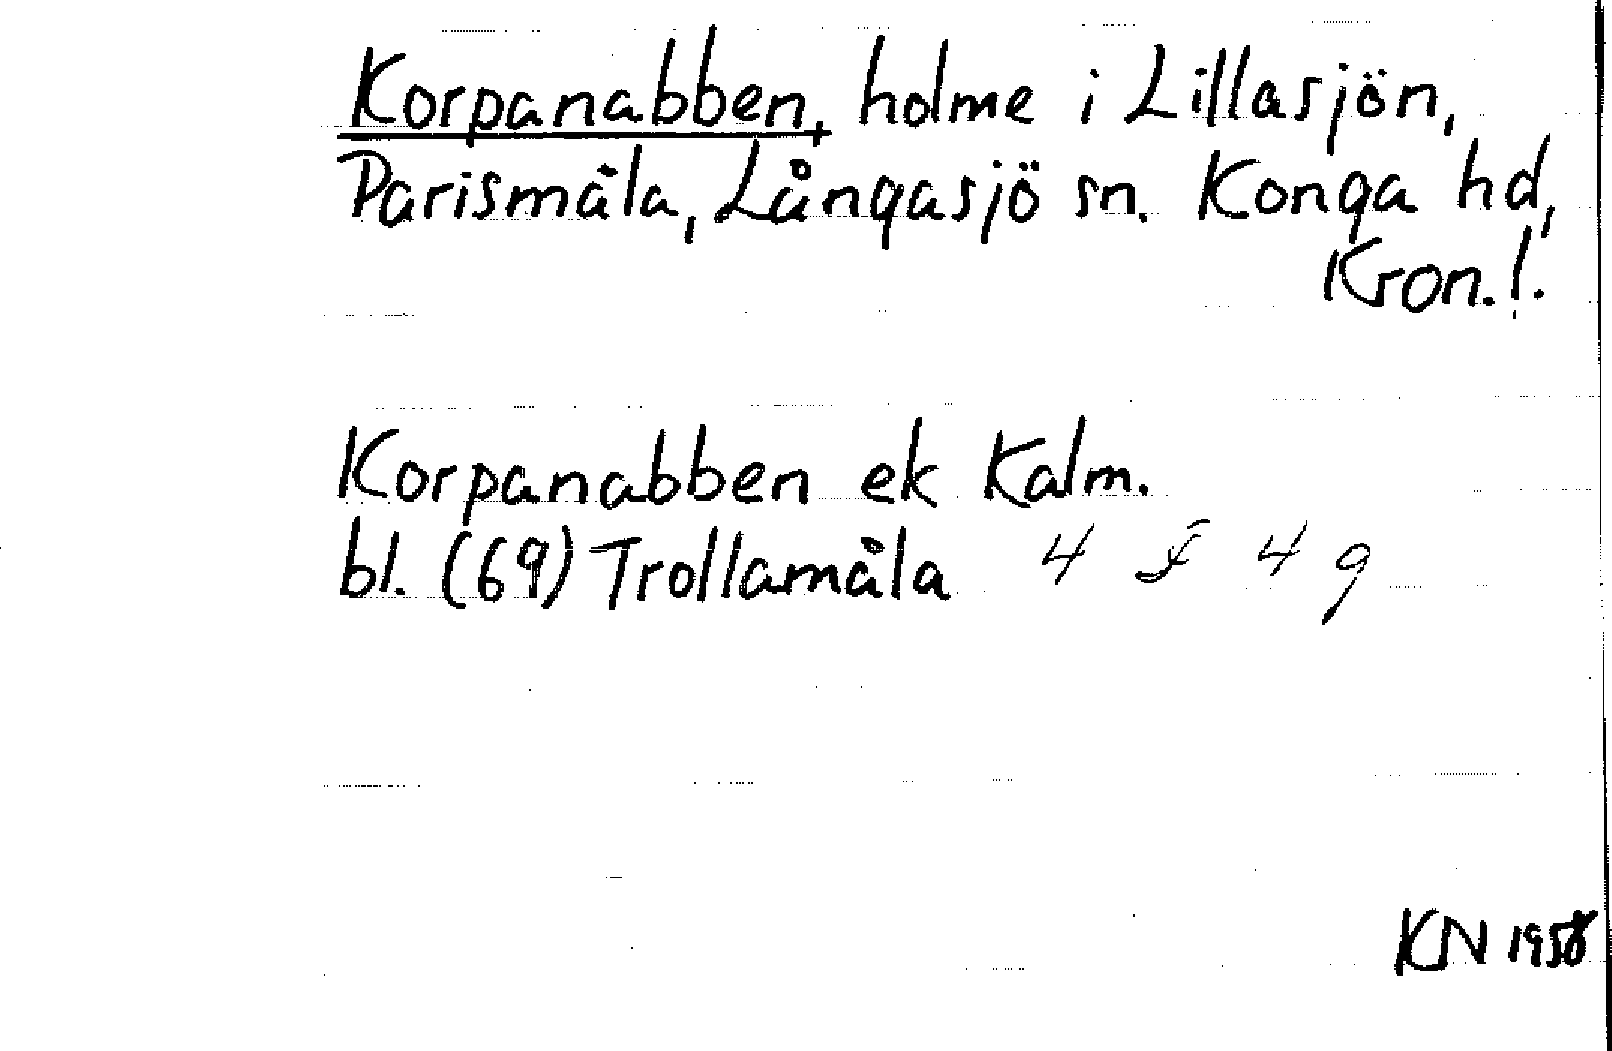 Korpanabben, holme i Lillasjön,
Parismåla, Långasjö sn. Konga hd,
Kron. l.
Korpanabben ek Kalm.
bl. (69) Trollamåla 4 F 4 g
KN 1958